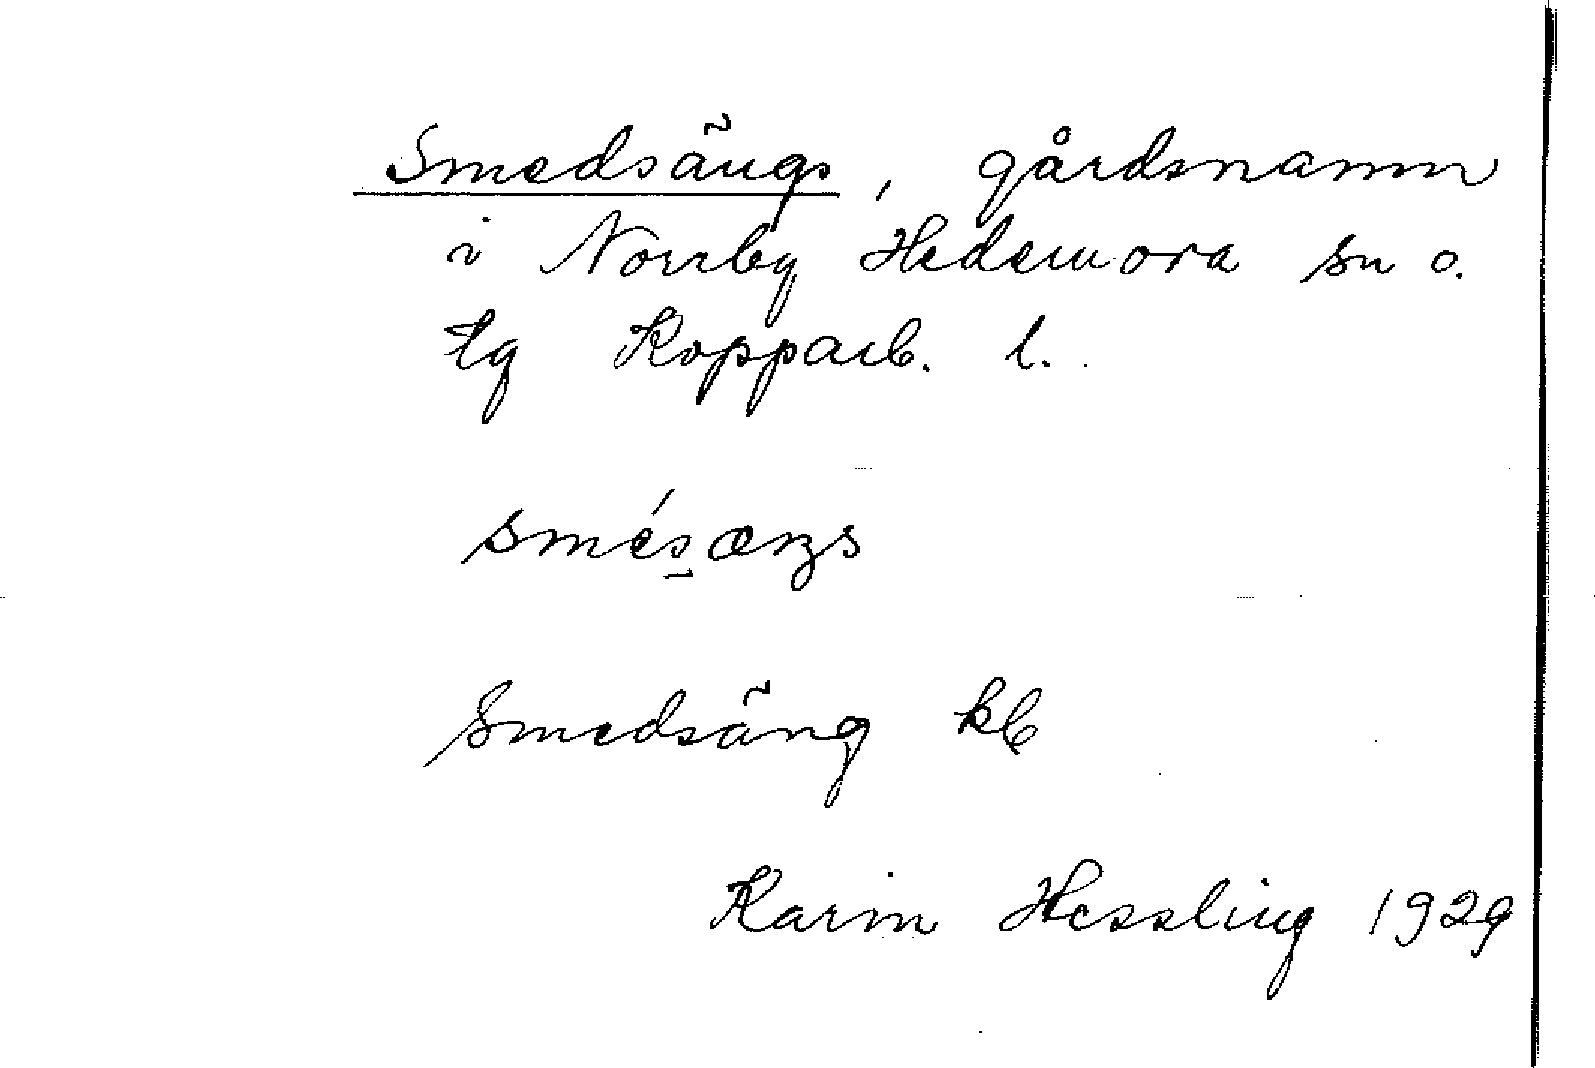 Smedsängs, gårdsnamn
i Norrby Hedemora sn o.
tg Kopparb. l.
smésæŋs
Smedsäng kb
Karin Hessling 1929